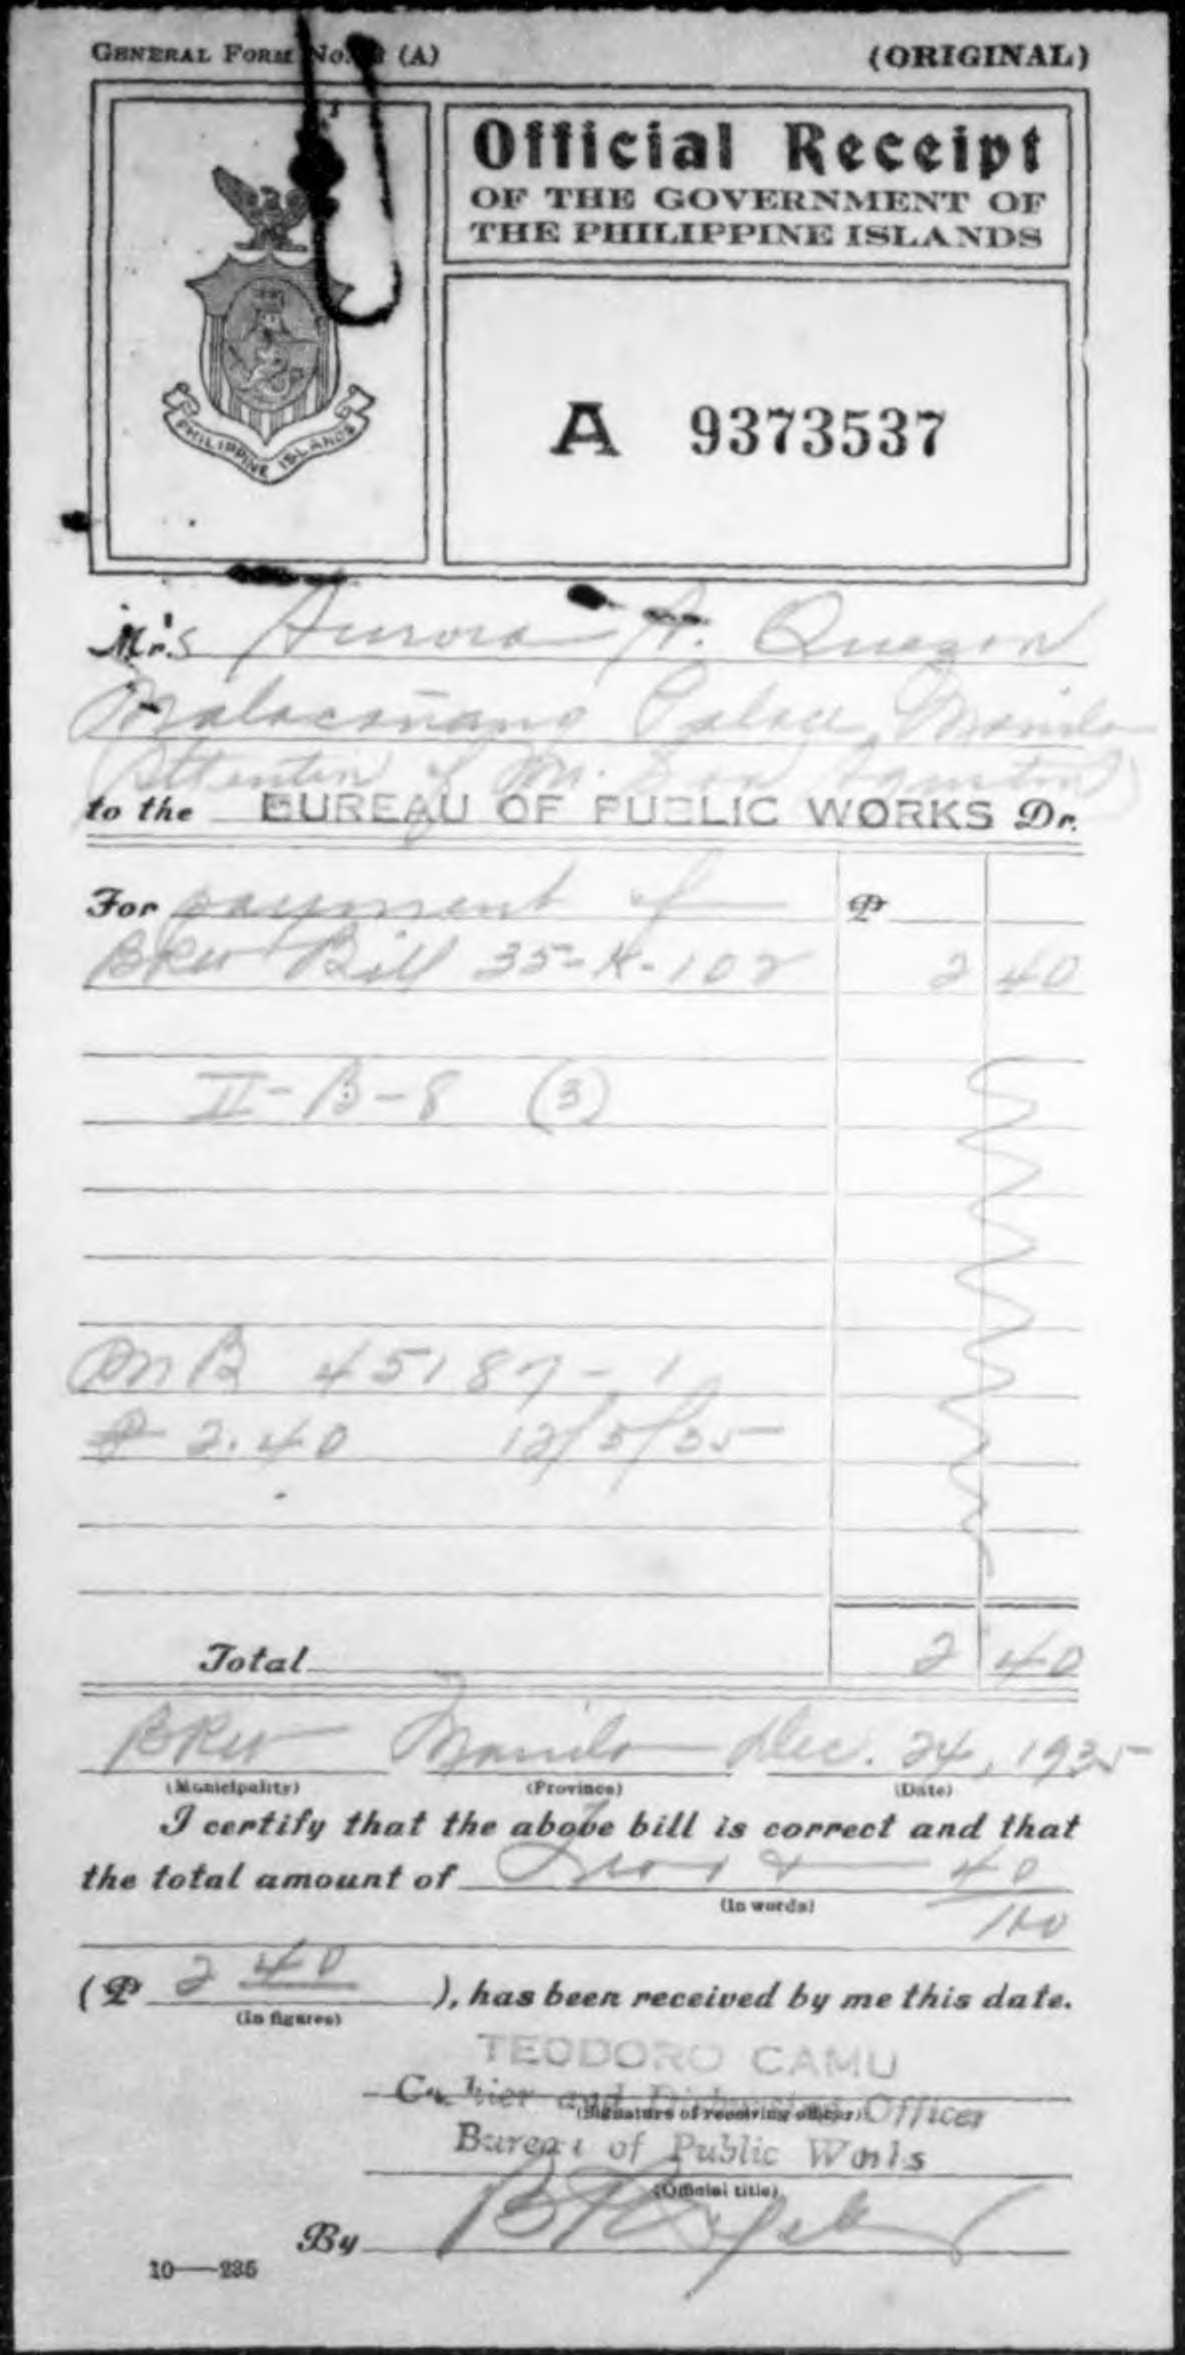 GENERAL FORM No. (A)
(ORIGINAL)
Official Receipt
OF THE GOVERNMENT OF
THE PHILIPPINE ISLANDS
PHILIPPINE ISLANDS
A 9373537
Mr's Aurora A. Quezon
Malacañang Palace, Manila
(Attention of Mr.
to the BUREAU OF PUBLIC WORKS Dr.
For payment of ₱
BPW Bill 35-K-102 2 40
II-B-8 (3)
PNB 45187-1
₱ 2.40 12/5/35
Total 2 40
BPW Manila Dec. 24, 1935
(Municipality) (Province) (Date)
I certify that the above bill is correct and that
the total amount of Two & 40/100
(In words)
(₱ 2 40 ), has been received by me this date.
(In figures)
TEODORO CAMU
Cashier and Disbursing Officer
(Signature of receiving officer)
Bureau of Public Works
(Official title)
By
10—235